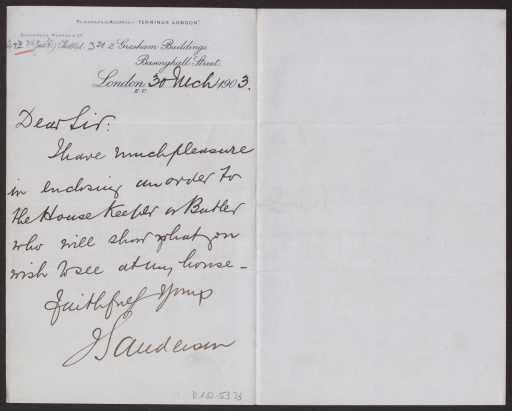 TELEGRAPHIC ADDRESS: "TERMINUS LONDON".
2 Gresham Buildings
Basinghall Street.
London 30 Mch 1903.
E.C.
Dear Sir:
I have much pleasure
in enclosing an order to
the House Keeper or Butler
who will show what you
wish to see at my house -
Faithfully Yours
J Sanderson